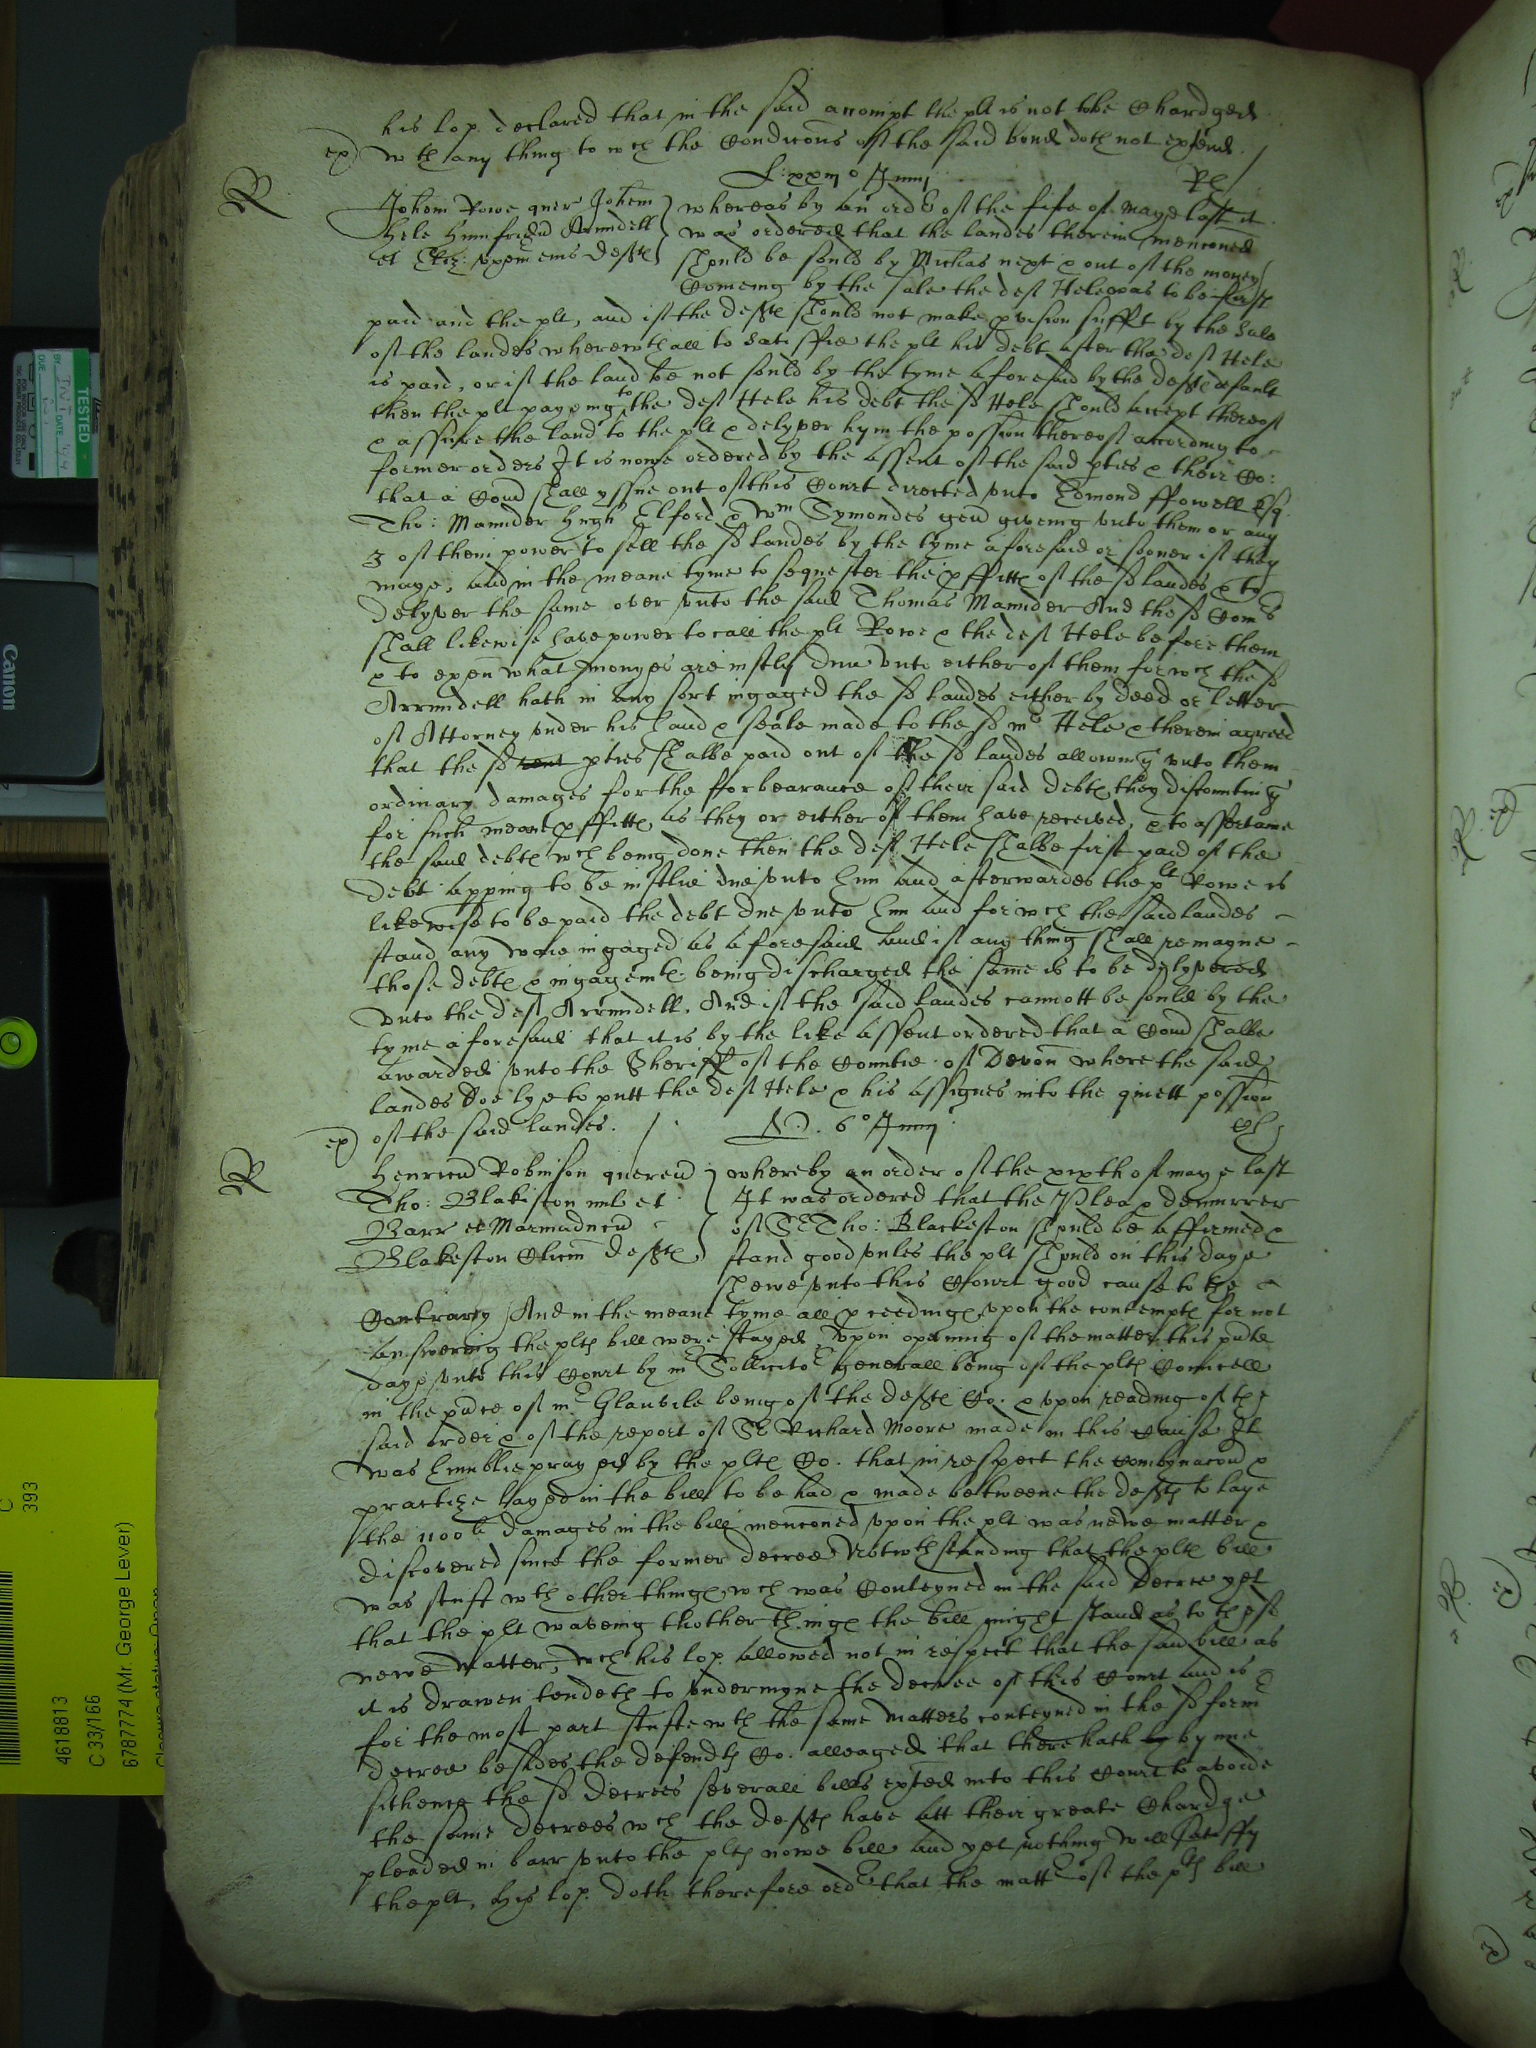 his lop. declared that in the said accompt the plt is not tobe Chardged
ex) wth any thing to wch the Condicons of the said bond doth not extend /
L: xxiijo Junij
R
Johem Rowe quer Johem
Hele Humfridu Arundell
et uxorem eius Defte
whereas by an order of the fifte of maye last it
was ordered that the landes therein menconed
should be sould by Michas next & out of the money
Comeing by the sale the deft Hele was to be first
paid and the plt, and if the defte should not make pvision suffit by the sale
of the landes wherewthall to satisffie the plt his debt after the deft Hele
is paid, or if the land be not sould by the tyme aforesaid by the defte default
then the plt payping to the deft Hele his debt the sd Hele should accept thereof
& assure the land to the plt & delyver hym the possion thereof according to
former orders It is nowe ordered by the assent of the said pties & their Co:
that a Comd shall yssue out of this Court directed unto Edmond ffowell Esq.
Tho: Maunder Hugh Elford & Wm Symondes gen giveing unto them or any
3 of them power to sell the sd landes by the tyme aforesaid or sooner if they
maye, and in the meane tyme to sequester the pffitte of the sd landes & to
delyver the same over unto the said Thomas Maunder And the sd Comrs
shall likewise have power to call the plt Rowe & the deft Hele before them
& to exam what monyes are iustly due unto either of them for wch the sd
Arrundell hath in any sort ingaged the sd landes either by deed or letter
of Attorney under his hand & seale made to the sd mr Hele & therein agreed
that the sd pties shalbe paid out of the sd landes allowing unto them
ordinary damages for the fforbearance of their said debte they discounting
for such meane pffitte as they or either of them have received, & to assertaine
the said debte wch being done then the deft Hele shalbe first paid of the
debt apping to be iustlie due unto him and afterwardes the plt Rowe is
likewise to be paid the debt due unto him and for wch the said landes
stand any waie ingaged as aforesaid and if any thing shall remayne
those debte & ingagemte being discharged the same is to be delyvered
unto the deft Arrundell. And if the said landes cannott be sould by the
tyme aforesaid that it is by the like assent ordered that a Comd shalbe
awarded unto the Sheriff of the Countie of Devon where the said
landes doe lye to putt the deft Hele & his assignes into the quiett possion
ex) of the said landes. /
6o Junij
R
Henricu Robinson quereu
Tho: Blakiston milt et
Barr et Marmaducu
Blakeston Clicum defte
whereby an order of the xixth of maye last
It was ordered that the Plea & demurrer
of Sr Tho: Blackeston should be affirmed &
stand good unles the plt should on this daye
shewe unto this Court good cause to the
Contrary And in the meane tyme all pceedinge upon the contempte for not
answereing the plts bill were stayed, upon opening of the matter this pnte
daye unto this Court by mr Sollicitor generall being of the plts Councell
in the pnce of mr Glanvile being of the defte Co. & upon reading of the
said order & of the report of Sr Richard Moore made in this Cause It
was humblie prayed by the plte Co. that in respect the Combynacon &
practize layed in the bill to be had & made betweene the defte to laye
the 1100li damages in the bill menconed upon the plt was newe matter &
discovered since the former decree Notwthstanding that the plte bill
was stuft wth other thinge wch was Conteyned in the said Decree yet
that the plt waveing thother thinge the bill might stand as to these
newe matter, wch his lop. allowed not in respect that the said bill as
it is drawen tendeth to undermyne the decree of this Court and is
for the most part stufte wth the same matters conteyned in the sd former
decree besides the defendts Co. alleaged that there hath by nine
sithence the sd decrees severall bills exted into this Court to avoide
the same decrees wch the defte have att their greate Chardge
pleaded in barr unto the plts nowe bill and yet nothing will satisffy
the plt, His lop. doth therefore order that the matter of the plts bill
TESTED
Canon
C
393
4618813
C 33/166
6787774 (Mr. George Lever)